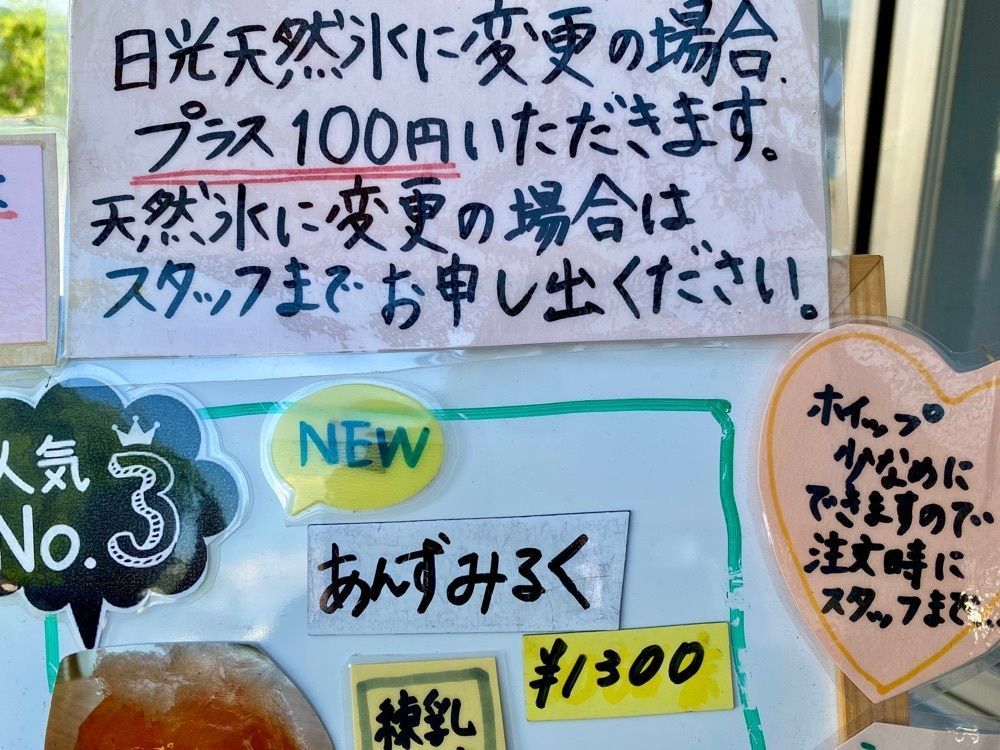 日光天然氷に変更の場合、
プラス100円いただきます。
天然氷に変更の場合は
スタッフまでお申し出ください。
人気
No.3
NEW
あんずみるく
¥1300
練乳
ホイップ
少なめに
できますので
注文時に
スタッフまで